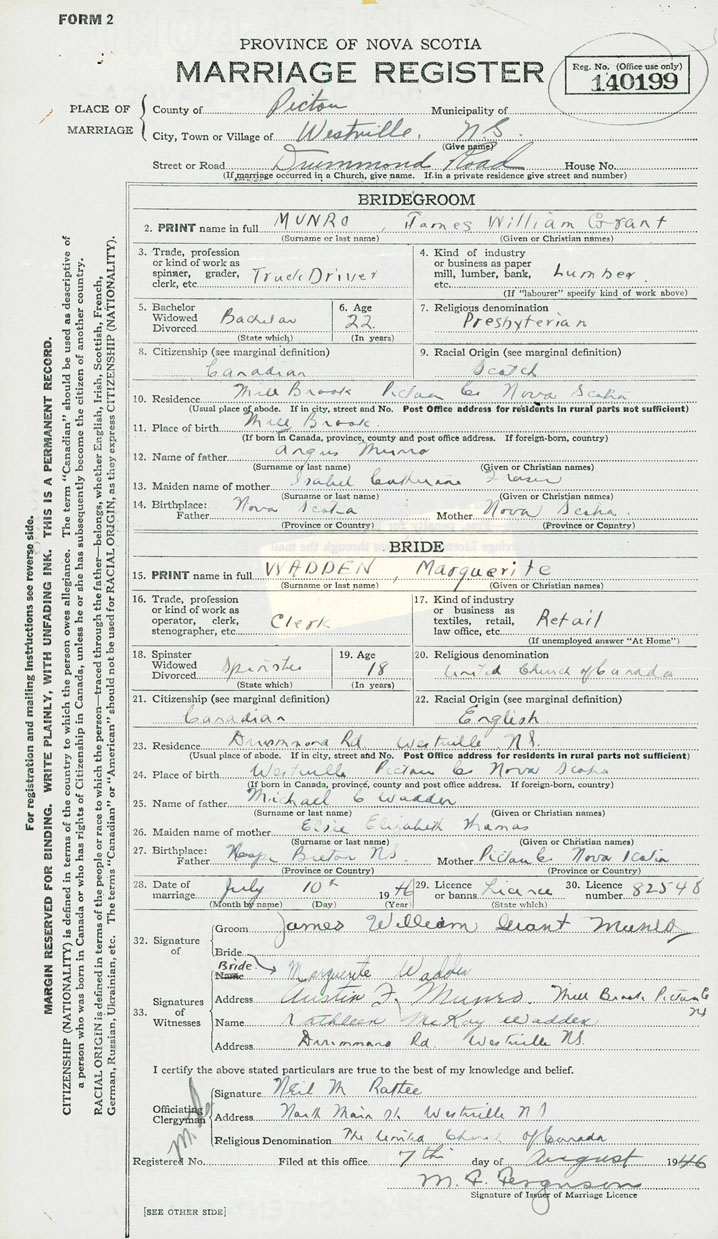 FORM 2
PROVINCE OF NOVA SCOTIA
MARRIAGE REGISTER
Reg. No. (Office use only)
140199
PLACE OF MARRIAGE
County of Pictou Municipality of
City, Town or Village of Westville, N.S.
(Give name)
Street or Road Drummond Road House No.
(If marriage occurred in a Church, give name. If in a private residence give street and number)
BRIDEGROOM
2. PRINT name in full MUNRO, James William Grant
(Surname or last name) (Given or Christian names)
3. Trade, profession or kind of work as spinner, grader, clerk, etc. Truck Driver
4. Kind of industry or business as paper mill, lumber, bank, etc. Lumber.
(If "labourer" specify kind of work above)
5. Bachelor Widowed Divorced Bachelor
(State which)
6. Age 22
(In years)
7. Religious denomination Presbyterian
8. Citizenship (see marginal definition) Canadian
9. Racial Origin (see marginal definition) Scotch
10. Residence Mill Brook Pictou Co Nova Scotia
(Usual place of abode. If in city, street and No. Post Office address for residents in rural parts not sufficient)
11. Place of birth Mill Brook.
(If born in Canada, province, county and post office address. If foreign-born, country)
12. Name of father Angus Munro
(Surname or last name) (Given or Christian names)
13. Maiden name of mother Isabel Catherine Fraser
(Surname or last name) (Given or Christian names)
14. Birthplace: Father Nova Scotia Mother Nova Scotia.
(Province or Country) (Province or Country)
BRIDE
15. PRINT name in full WADDEN, Marguerite
(Surname or last name) (Given or Christian names)
16. Trade, profession or kind of work as operator, clerk, stenographer, etc. Clerk
17. Kind of industry or business as textiles, retail, law office, etc. Retail
(If unemployed answer "At Home")
18. Spinster Widowed Divorced Spinster
(State which)
19. Age 18
(In years)
20. Religious denomination United Church of Canada
21. Citizenship (see marginal definition) Canadian
22. Racial Origin (see marginal definition) English.
23. Residence Drummond Rd. Westville N.S.
(Usual place of abode. If in city, street and No. Post Office address for residents in rural parts not sufficient)
24. Place of birth Westville Pictou Co Nova Scotia
(If born in Canada, province, county and post office address. If foreign-born, country)
25. Name of father Michael C Wadden
(Surname or last name) (Given or Christian names)
26. Maiden name of mother Elsie Elizabeth Thomas
(Surname or last name) (Given or Christian names)
27. Birthplace: Father Cape Breton N.S. Mother Pictou Co Nova Scotia
(Province or Country) (Province or Country)
28. Date of marriage July 10th 1946
(Month by name) (Day) (Year)
29. Licence or banns Licence
(State which)
30. Licence number 82548
32. Signature of
Groom James William Grant Munro
Bride
Bride Name Marguerite Wadden
33. Signatures of Witnesses
Austin F. Munro.
Address Mill Brook Pictou Co NS
Name Kathleen McKay Wadden
Address Drummond Rd. Westville N.S.
I certify the above stated particulars are true to the best of my knowledge and belief.
Officiating Clergyman
Signature Neil M Rattee
Address North Main St Westville N S
Religious Denomination The United Church of Canada
Registered No. Filed at this office 7th day of August 1946
M. A. Ferguson
Signature of Issuer of Marriage Licence
[SEE OTHER SIDE]
For registration and mailing instructions see reverse side.
MARGIN RESERVED FOR BINDING. WRITE PLAINLY, WITH UNFADING INK. THIS IS A PERMANENT RECORD.
CITIZENSHIP (NATIONALITY) is defined in terms of the country to which the person owes allegiance. The term "Canadian" should be used as descriptive of
a person who was born in Canada or who has rights of Citizenship in Canada, unless he or she has subsequently become the citizen of another country.
RACIAL ORIGIN is defined in terms of the people or race to which the person—traced through the father—belongs, whether English, Irish, Scottish, French,
German, Russian, Ukrainian, etc. The terms "Canadian" or "American" should not be used for RACIAL ORIGIN, as they express CITIZENSHIP (NATIONALITY).